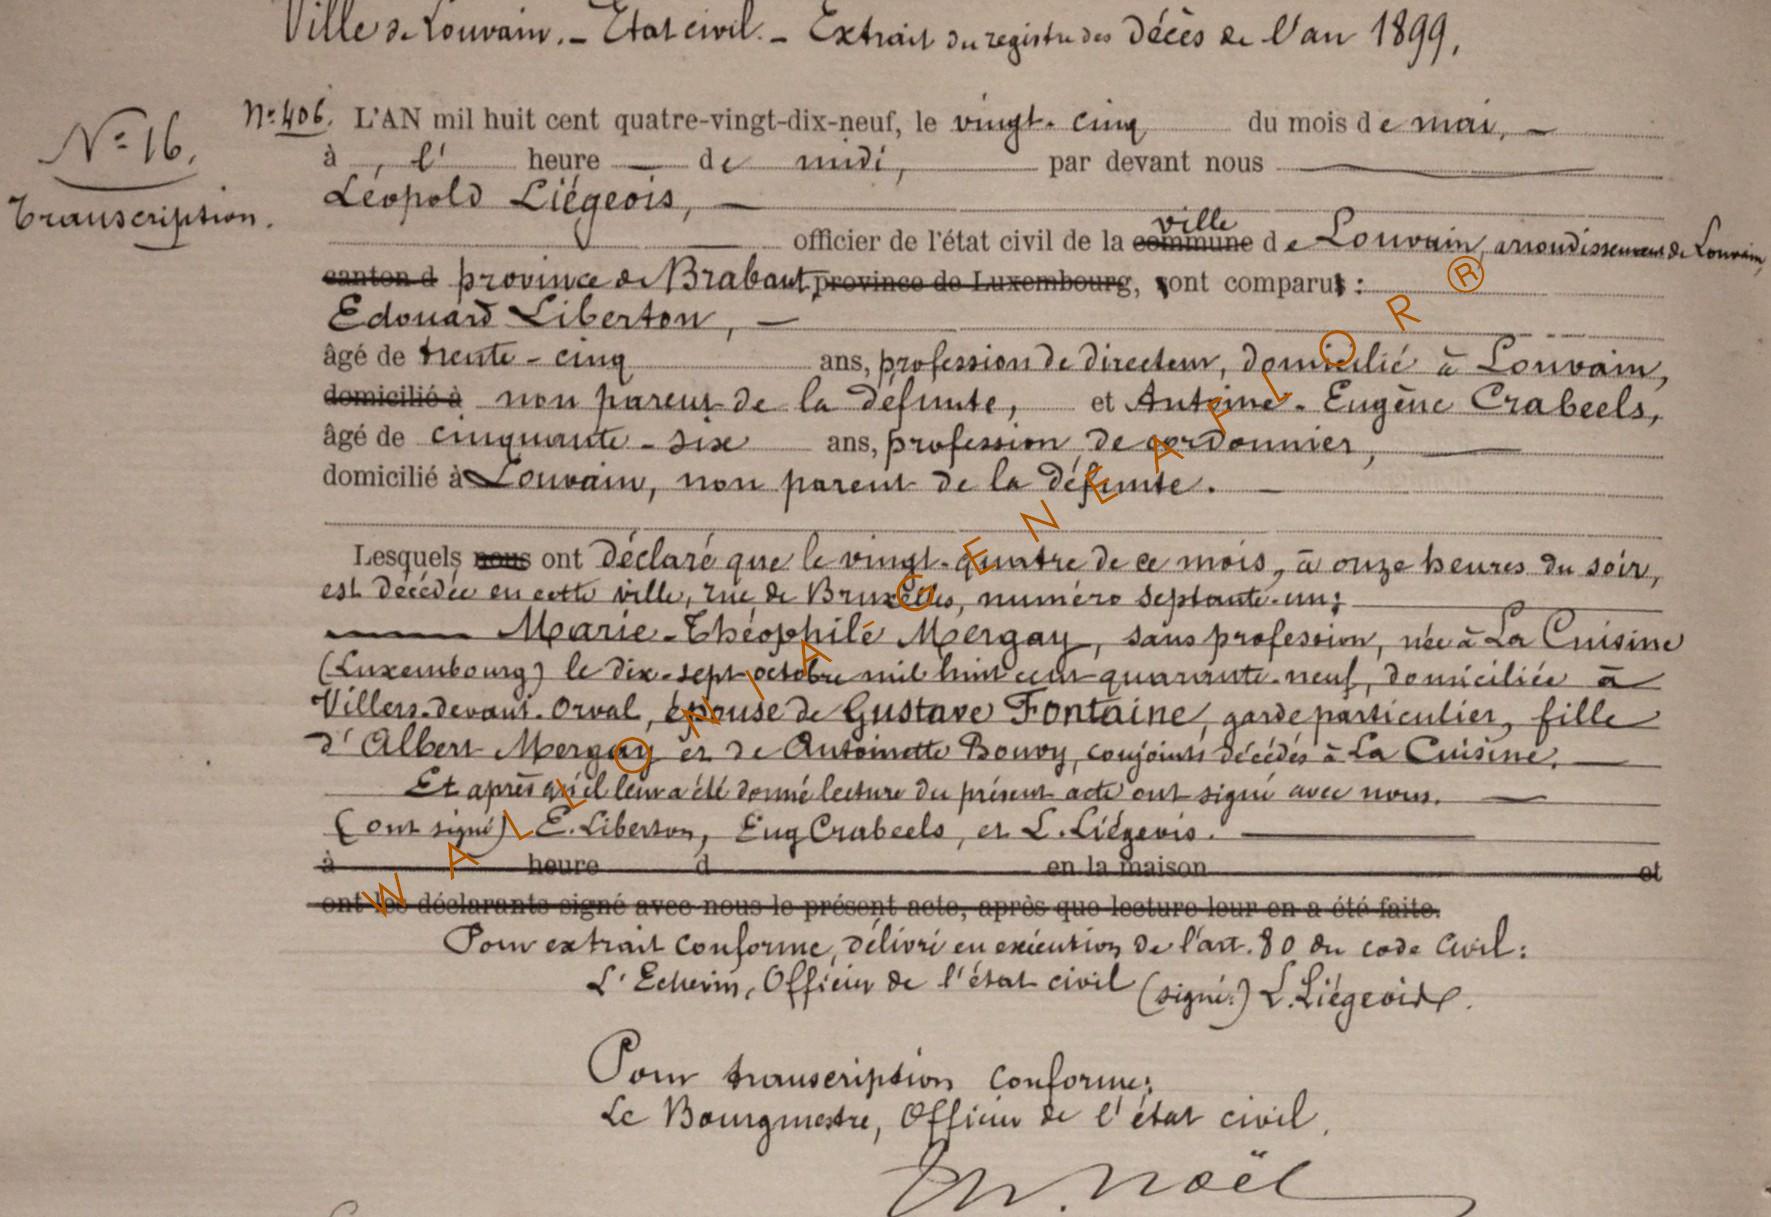 Ville de Louvain. - Etat civil. - Extrait du registre des décès de l'an 1899.
N° 16.
Transcription.
N° 406. L'AN mil huit cent quatre-vingt-dix-neuf, le vingt-cinq du mois de mai, -
à , l' heure de midi, par devant nous
Léopold Liégeois, -
ville
officier de l'état civil de la commune de Louvain, arrondissement de Louvain,
canton d province de Brabant, province de Luxembourg, ont comparu :
Edouard Liberton, -
âgé de trente-cinq ans, profession de directeur, domicilié à Louvain,
domicilié à non parent de la défunte, et Antoine-Eugène Crabeels,
âgé de cinquante-six ans, profession de cordonnier,
domicilié à Louvain, non parent de la défunte. -
Lesquels nous ont déclaré que le vingt-quatre de ce mois, à onze heures du soir,
est décédée en cette ville, rue de Bruxelles, numéro septante-un;
Marie-Théophile Mergay, sans profession, née à La Cuisine
(Luxembourg) le dix-sept octobre mil huit cent quarante-neuf, domiciliée à
Villers-devant-Orval, épouse de Gustave Fontaine, garde particulier, fille
d'Albert Mergay et de Antoinette Bouvy, conjoints décédés à La Cuisine. -
Et après qu'il leur a été donné lecture du présent acte ont signé avec nous. -
(ont signé) E. Liberton, Eug Crabeels, et L. Liégeois.
à heure d en la maison et
ont les déclarants signé avec nous le présent acte, après que lecture leur en a été faite.
Pour extrait conforme, délivré en exécution de l'art. 80 du code civil:
L'Echevin, Officier de l'état civil (signé:) L. Liégeois.
Pour transcription conforme:
Le Bourgmestre, Officier de l'état civil.
Noël
WALLONIA GENEAFLOR ®